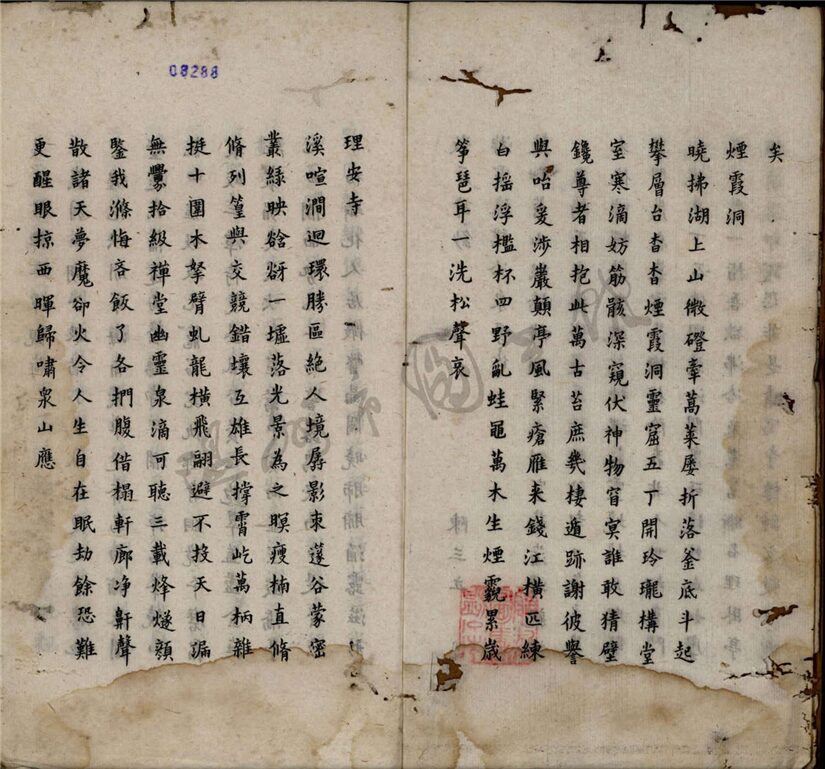 矣
煙霞洞
曉拂湖上山微磴牽蒿萊屡折落釜底斗起
攀層台杳杳煙霞洞靈窟五丁開玲瓏構堂
室寒滴妨筋骸深窺伏神物窅冥誰敢猜壁
鑱尊者相抱此萬古苔庶幾棲遁跡謝彼譽
與咍爰涉巖顛亭風緊瘡雁来錢江橫匹練
白摇浮檻杯四野亂蛙黽萬木生煙靄累歲
箏琶耳一洗松聲哀
08288
理安寺
溪喧澗迴環勝區絶人境孱影束蓬谷蒙密
叢綠映谽谺一墟落光景為之暝瘦楠直脩
脩列篁與交競錯壤互雄長撐霄屹萬柄雜
挺十圍木拏臂虬龍橫飛翮避不投天日漏
無釁拾級禅堂幽靈泉滴可聽三載烽燧顏
鑒我滌悔吝飯了各捫腹借榻軒廊净鼾聲
散諸天夢魔卻火令人生自在眠劫餘恐難
更醒眼掠西暉歸嘯泉山應